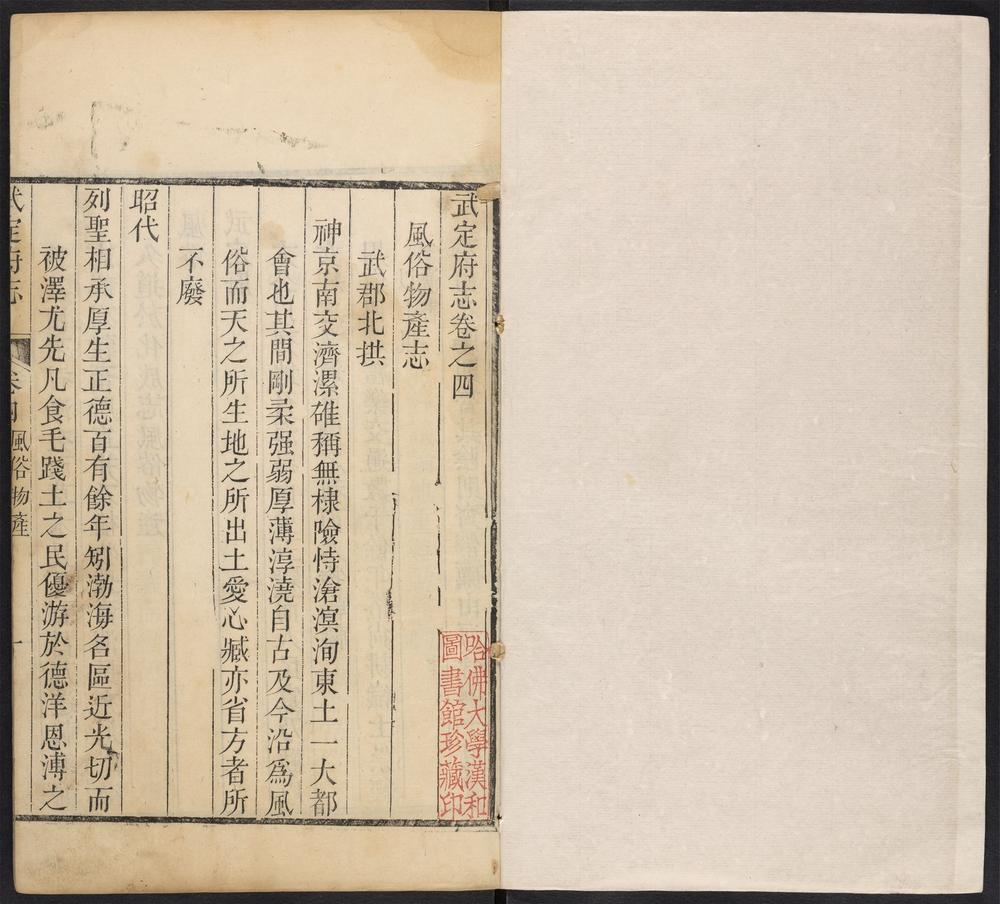 武定府志卷之四
風俗物產志
武郡北拱
神京南交濟漯雄稱無棣險恃滄溟洵東土一大都
會也其間剛柔强弱厚薄淳澆自古及今沿爲風
俗而天之所生地之所出土愛心臧亦省方者所
不廢
昭代
列聖相承厚生正德百有餘年矧渤海名區近光切而
被澤尤先凡食毛踐土之民優游於德洋恩溥之
武定府志 卷四 風俗物產 一
哈佛大學漢和
圖書館珍藏印